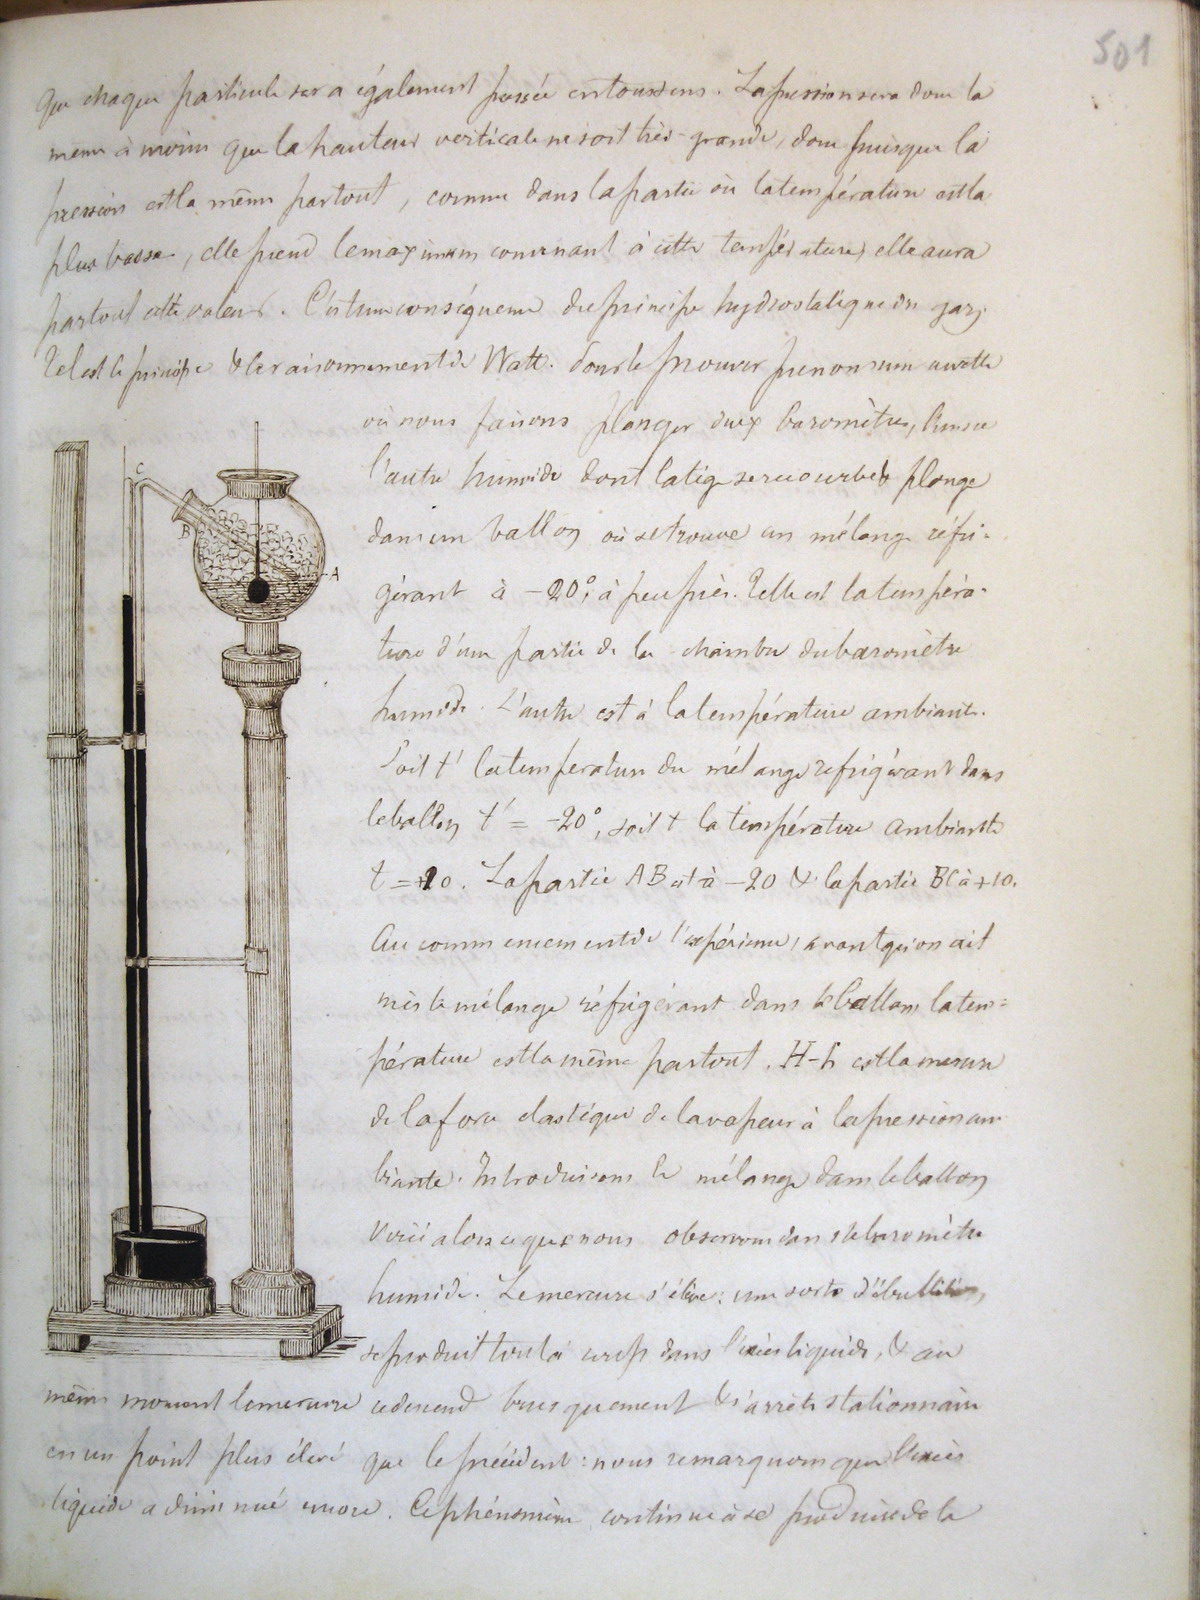 501
que chaque particule sera également pressée en tous sens. La pression sera donc la
même à moins que la hauteur verticale ne soit très-grande, donc puisque la
pression est la même partout, comme dans la partie où la température est la
plus basse, elle prend le maximum convenant à cette température, elle aura
partout cette valeur. C'est une conséquence du principe hydrostatique du gaz.
Tel est le principe & le raisonnement de Watt. Pour le prouver prenons une cuvette
où nous faisons plonger deux baromètres, l'un sec
l'autre humide dont la tige se recourbe & plonge
dans un ballon où se trouve un mélange réfri-
gérant à -20°, à peu près. Telle est la tempéra-
ture d'une partie de la chambre du baromètre
humide. L'autre est à la température ambiante.
Soit t' la température du mélange réfrigérant dans
le ballon t' = -20°, soit t la température ambiante
t = +10. La partie AB est à -20 & la partie BC à +10.
Au commencement de l'expérience, avant qu'on ait
mis le mélange réfrigérant dans le ballon, la tem=
pérature est la même partout. H-h est la mesure
de la force élastique de la vapeur à la pression am
biante. Introduisons le mélange dans le ballon
voici alors ce que nous observons dans le baromètre
humide. Le mercure s'élève; une sorte d'ébullition,
se produit tout à coup dans l'excès liquide, & au
même moment le mercure redescend brusquement & s'arrête stationnaire
en un point plus élevé que le précédent: nous remarquons que l'excès
liquide a diminué encore. Ce phénomène continue à se produire de la
B
C
A